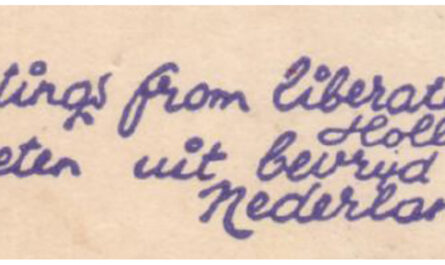 tings from liberat
Holl
eten uit bevrijd
Nederlan